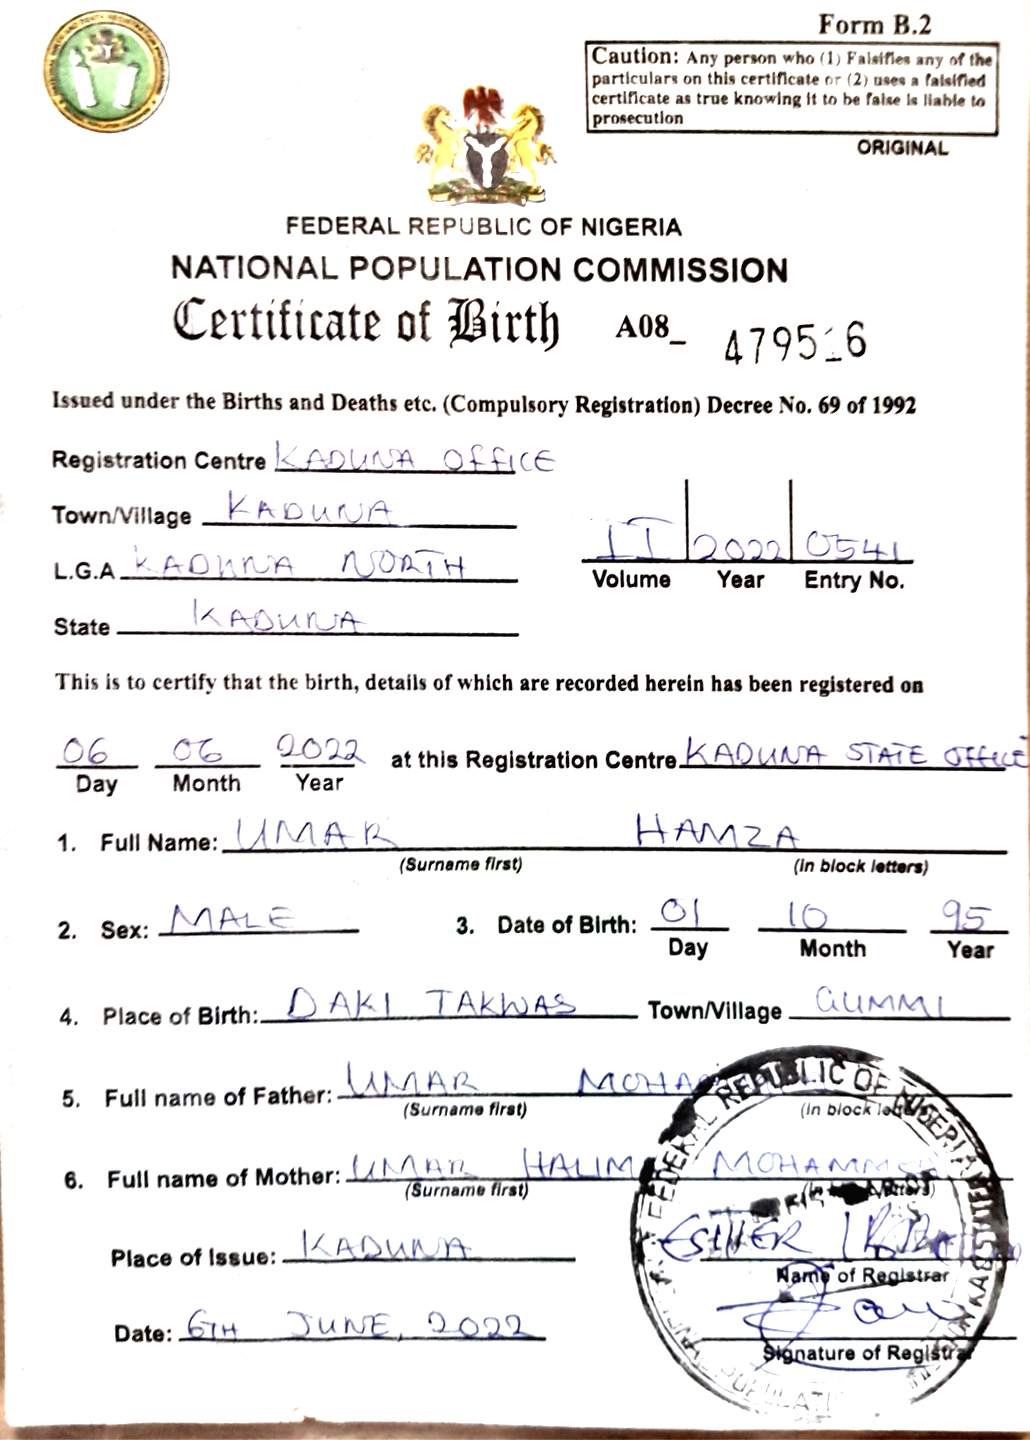 Form B.2
Caution: Any person who (1) Falsifies any of the
particulars on this certificate or (2) uses a falsified
certificate as true knowing it to be false is liable to
prosecution
ORIGINAL
FEDERAL REPUBLIC OF NIGERIA
NATIONAL POPULATION COMMISSION
Certificate of Birth A08_
Issued under the Births and Deaths etc. (Compulsory Registration) Decree No. 69 of 1992
Registration Centre KADUNA OFFICE
Town/Village KADUNA
L.G.A KADUNA NORTH
II 2022 0541
Volume Year Entry No.
State KADUNA
This is to certify that the birth, details of which are recorded herein has been registered on
06 06 2022 at this Registration Centre KADUNA STATE OFFICE
Day Month Year
1. Full Name: UMAR HAMZA
(Surname first) (in block letters)
2. Sex: MALE 3. Date of Birth: 01 10 95
Day Month Year
4. Place of Birth: DAKI TAKWAS Town/Village GUMMI
5. Full name of Father: UMAR
(Surname first) (in block
6. Full name of Mother: UMAR MOHAMMED
(Surname first)
Place of Issue: KADUNA
ESTHER
Name of Registrar
Date: 6TH JUNE, 2022
Signature of Registrar
FEDERAL REPUBLIC OF NIGERIA